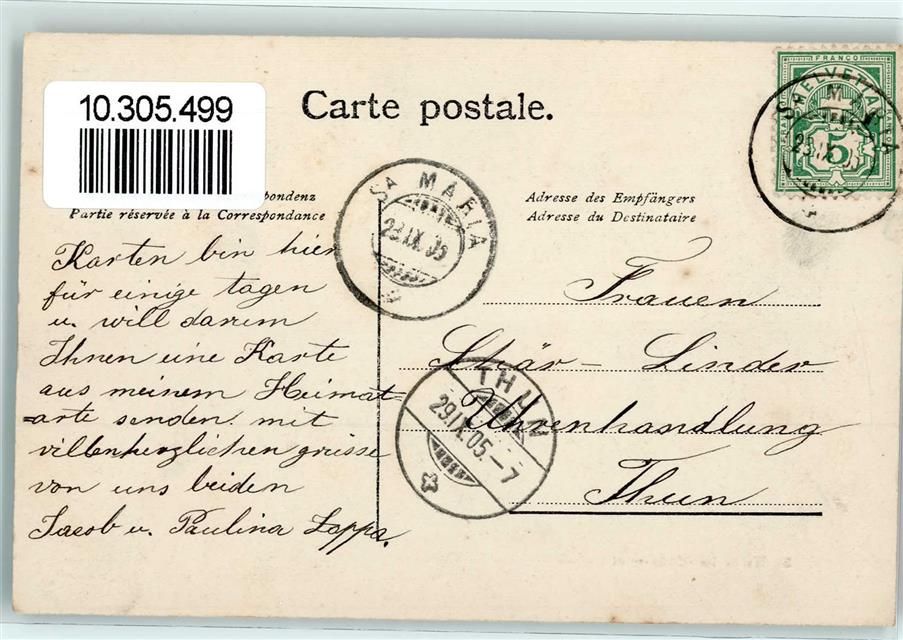 10.305.499
Carte postale.
FRANCO
HELVETIA
5
pondenz
Partie réservée à la Correspondance
Adresse des Empfängers
Adresse du Destinataire
Sa MARIA
28.IX.05
Karten bin hier
für einige tagen
u. will darum
Ihnen eine Karte
aus meinem Heimat=
=arte senden. mit
villenherzlichen grüsse
von uns beiden
Jacob u. Paulina Lappa.
Frauen
Schär - Linder
Uhrenhandlung
Thun
THUN
29.IX.05.-7